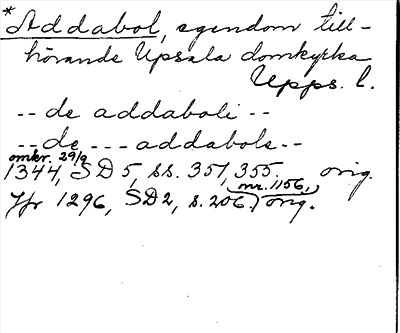 *Addabol, egendom till-
hörande Upsala domkyrka
Upps. l.
-- de addaboli --
-- de --- addabole --
omkr. 29/9
1344, SD 5, ss. 351, 355. orig.
nr. 1156,
Jfr 1296, SD 2, s. 206. orig.